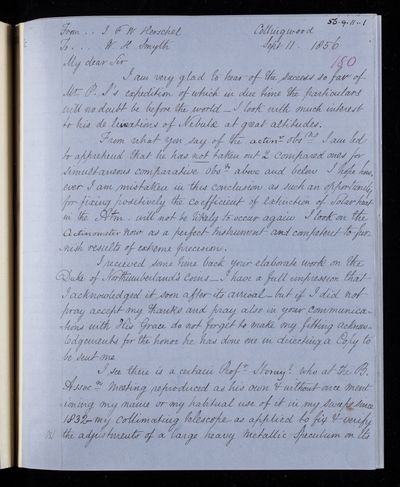 56-9-11-1
From .. J F W Herschel Collingwood
To .... W H Smyth Sept 11. 1856
150
My dear Sir
I am very glad to hear of the success so far of
Mr P. S's expedition of which in due time the particulars
will no doubt be before the world – I look with much interest
to his delineations of Nebulæ at great altitudes.
From what you say of the actinr obsns I am led
to apprehend that he has not taken out 2 compared ones for
simultaneous comparative obsns above and below I hope how-
ever I am mistaken in this conclusion as such an opportunity
for fixing positively the coefficient of extinction of Solar heat
in the Atm. will not be likely to occur again I look on the
Actinometer now as a perfect Instrument and competent to fur-
nish results of extreme precision.
I recieved some time back your elaborate work on the
Duke of Northumberland's Coins – I have a full impression that
I acknowledged it soon after its arrival – but if I did not
pray accept my thanks and pray also in your communica-
tions with His Grace do not forget to make my fitting acknow-
ledgements for the honor he has done me in directing a Copy to
be sent me
I see there is a certain Profr who at the B.
Assocn Meeting reproduced as his own & without once ment
ioning my name or my habitual use of it in my sweeps since
1832 – my collimating telescope as applied to fix & verify
the adjustments of a large heavy metallic speculum on its